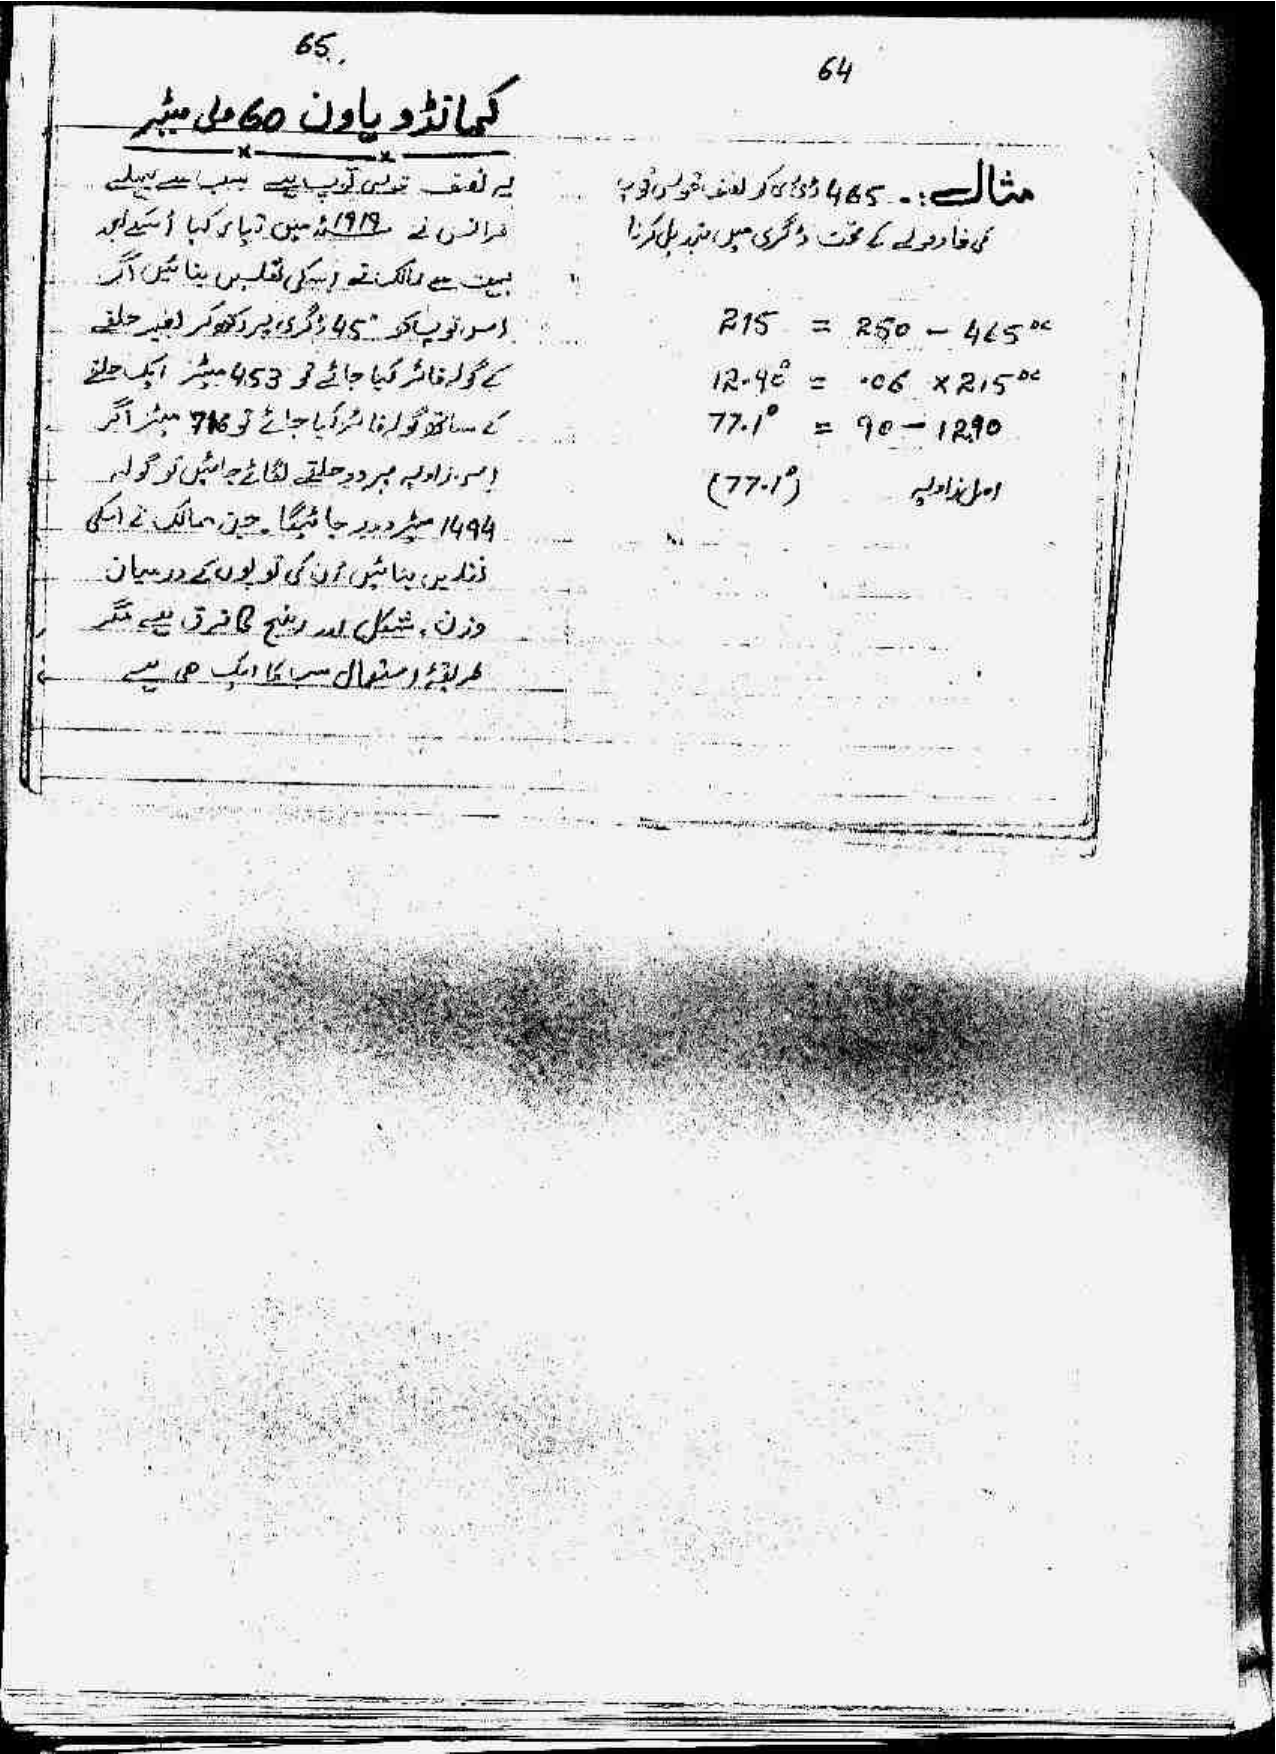 64
مثال :. 465 ڈی سی کو نصف قوسی توپ
کی فارمولے کے تحت ڈگری میں تبدیل کرنا
215 = 250 − 465 DC
12.90° = .06 × 215 DC
77.1° = 90 − 1290
اصل زاویہ (77.1°)
65
کمانڈو ہاون 60 ملی میٹر
یہ نصف قوسی توپ ہے سب سے پہلے
فرانس نے 1919ء میں تیار کیا اسکے بعد
بہت سے ممالک نے اسکی نقلیں بنائیں اگر
اس توپ کو 45° ڈگری پر رکھ کر بغیر حلقے
کے گولہ فائر کیا جائے تو 453 میٹر ایک حلقے
کے ساتھ گولہ فائر کیا جائے تو 746 میٹر اگر
اس زاویہ پر دو حلقے لگائے جائیں تو گولہ
1494 میٹر دور جائیگا۔ جن ممالک نے اسکی
نقلیں بنائیں اُن کی توپوں کے درمیان
وزن، شکل اور رینج کا فرق ہے مگر
طریقۂ استعمال سب کا ایک ھی ہے